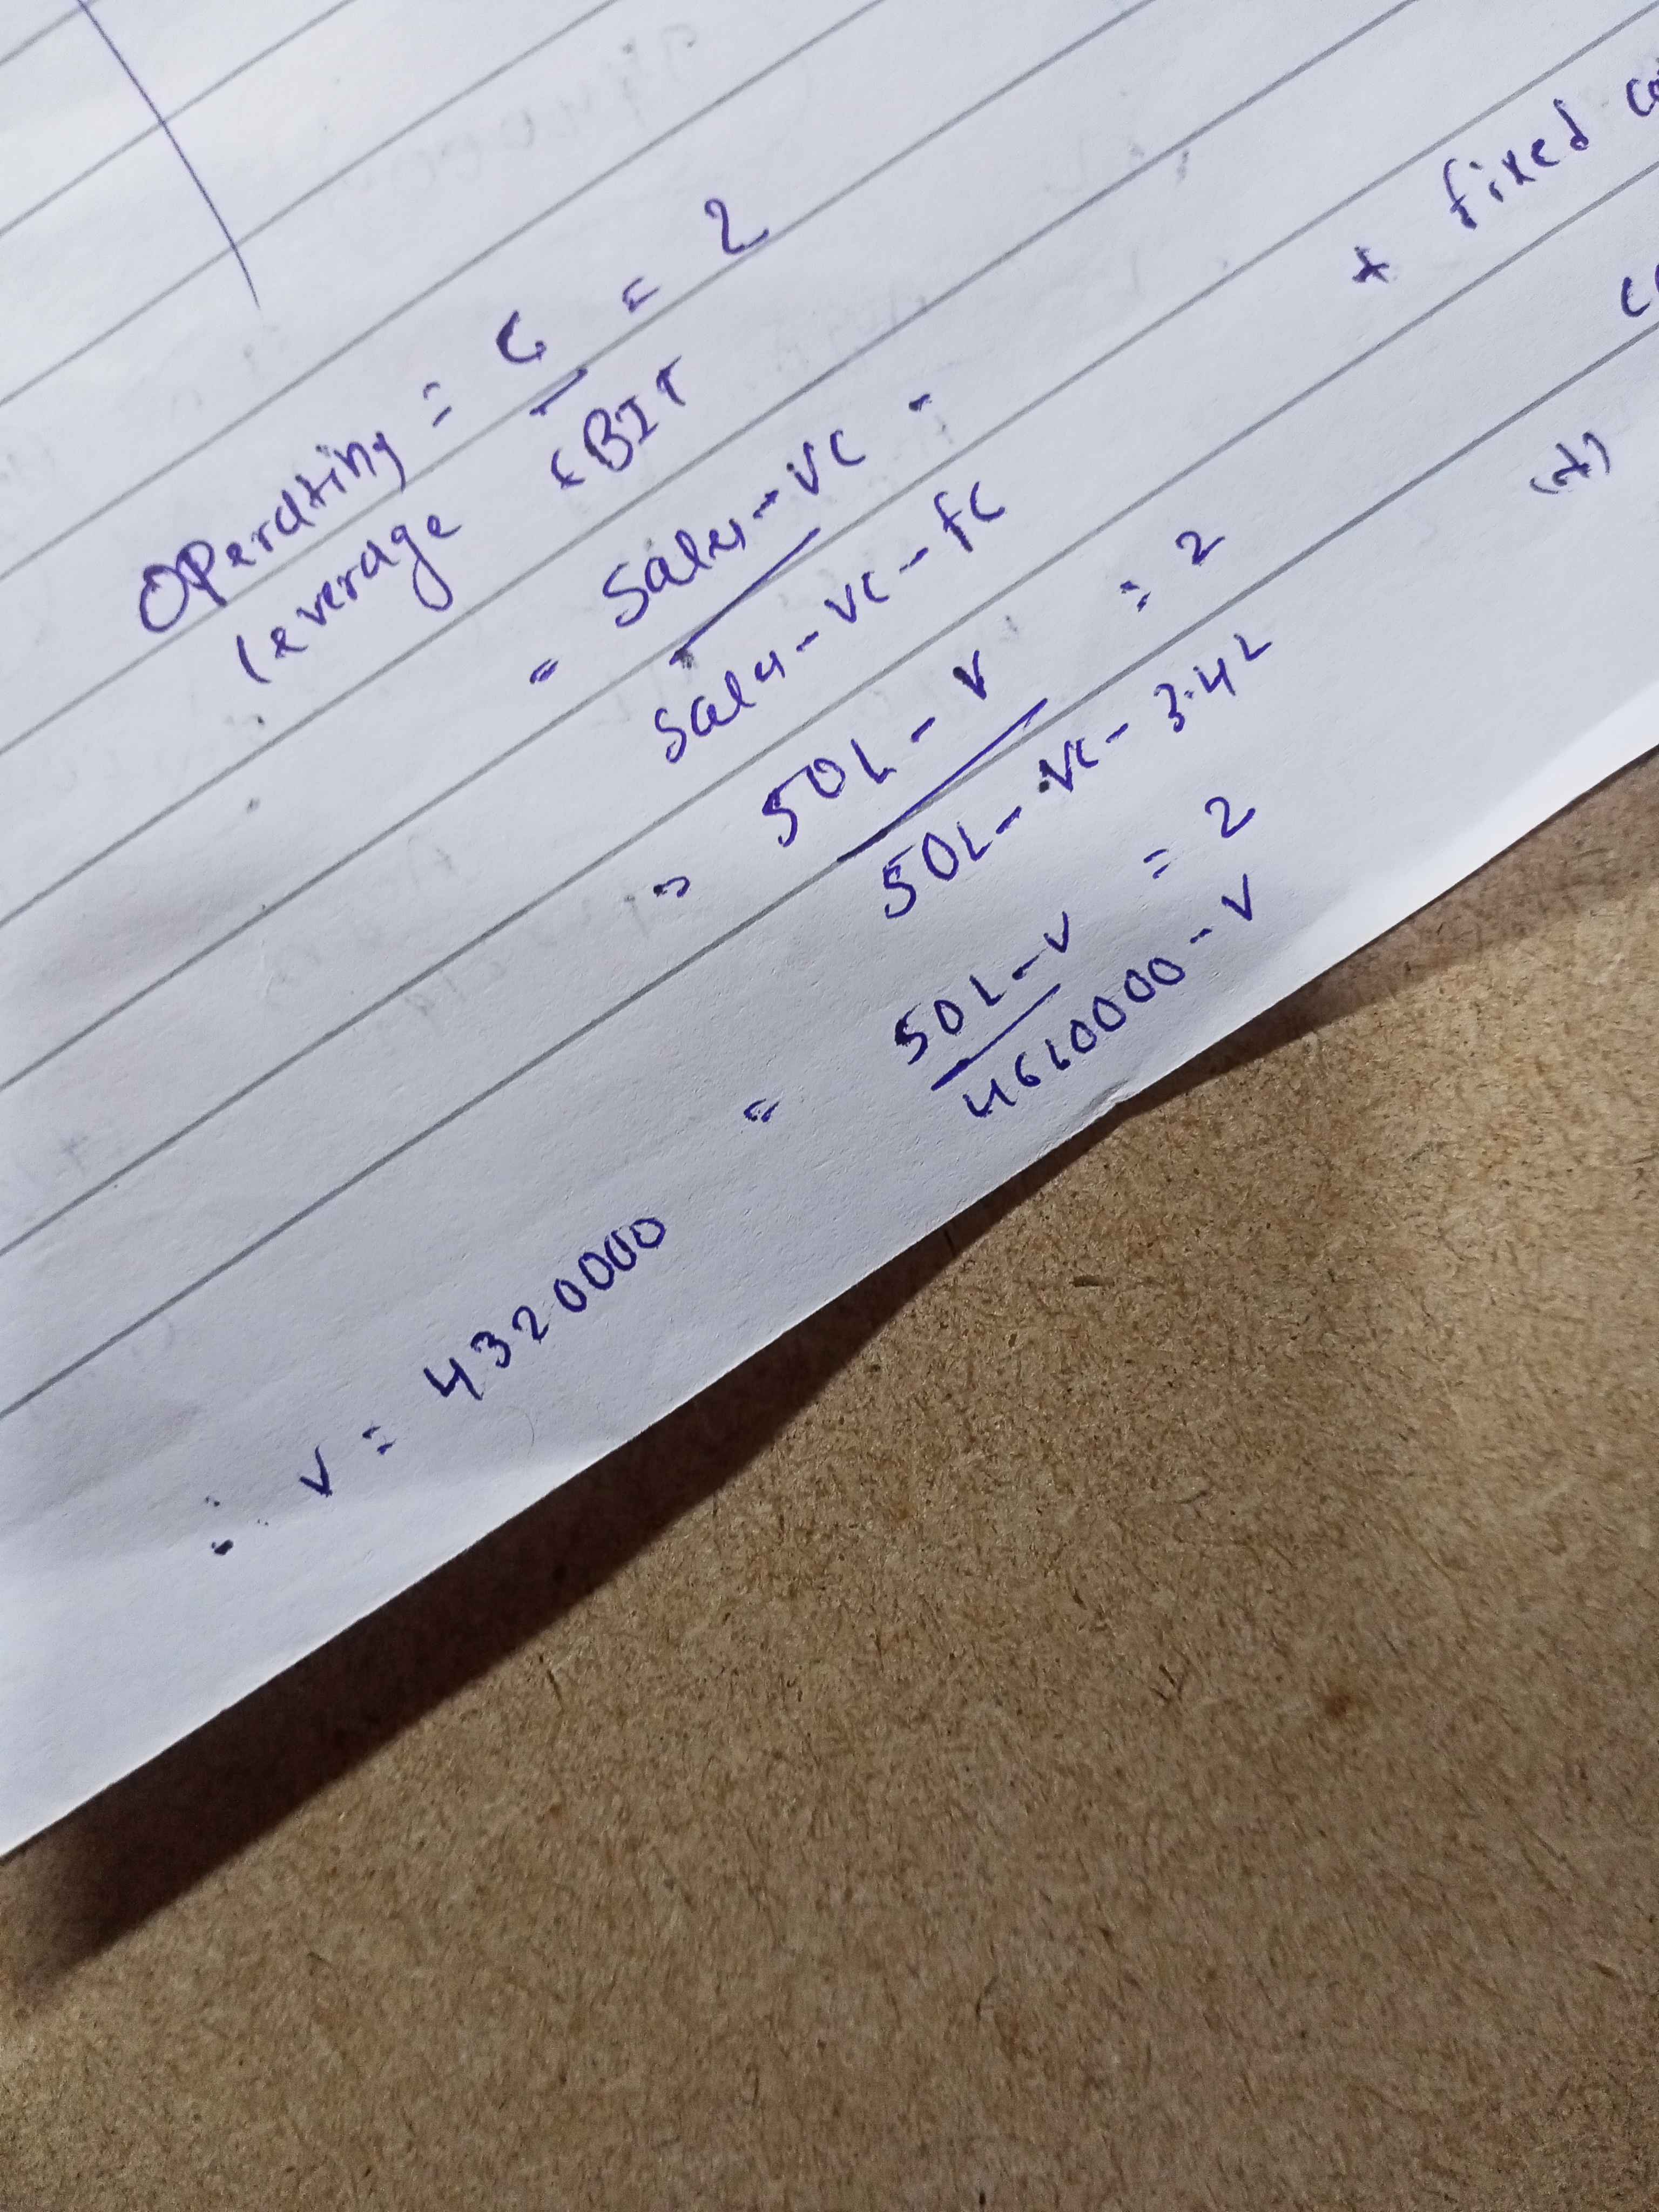 Operating leverage = C / EBIT = 2
= Sales - VC / Sales - VC - FC
= 50L - V / 50L - VC - 3.4L = 2
= 50L - V / 4660000 - V = 2
∴ V = 4320000
+ fixed
(+)